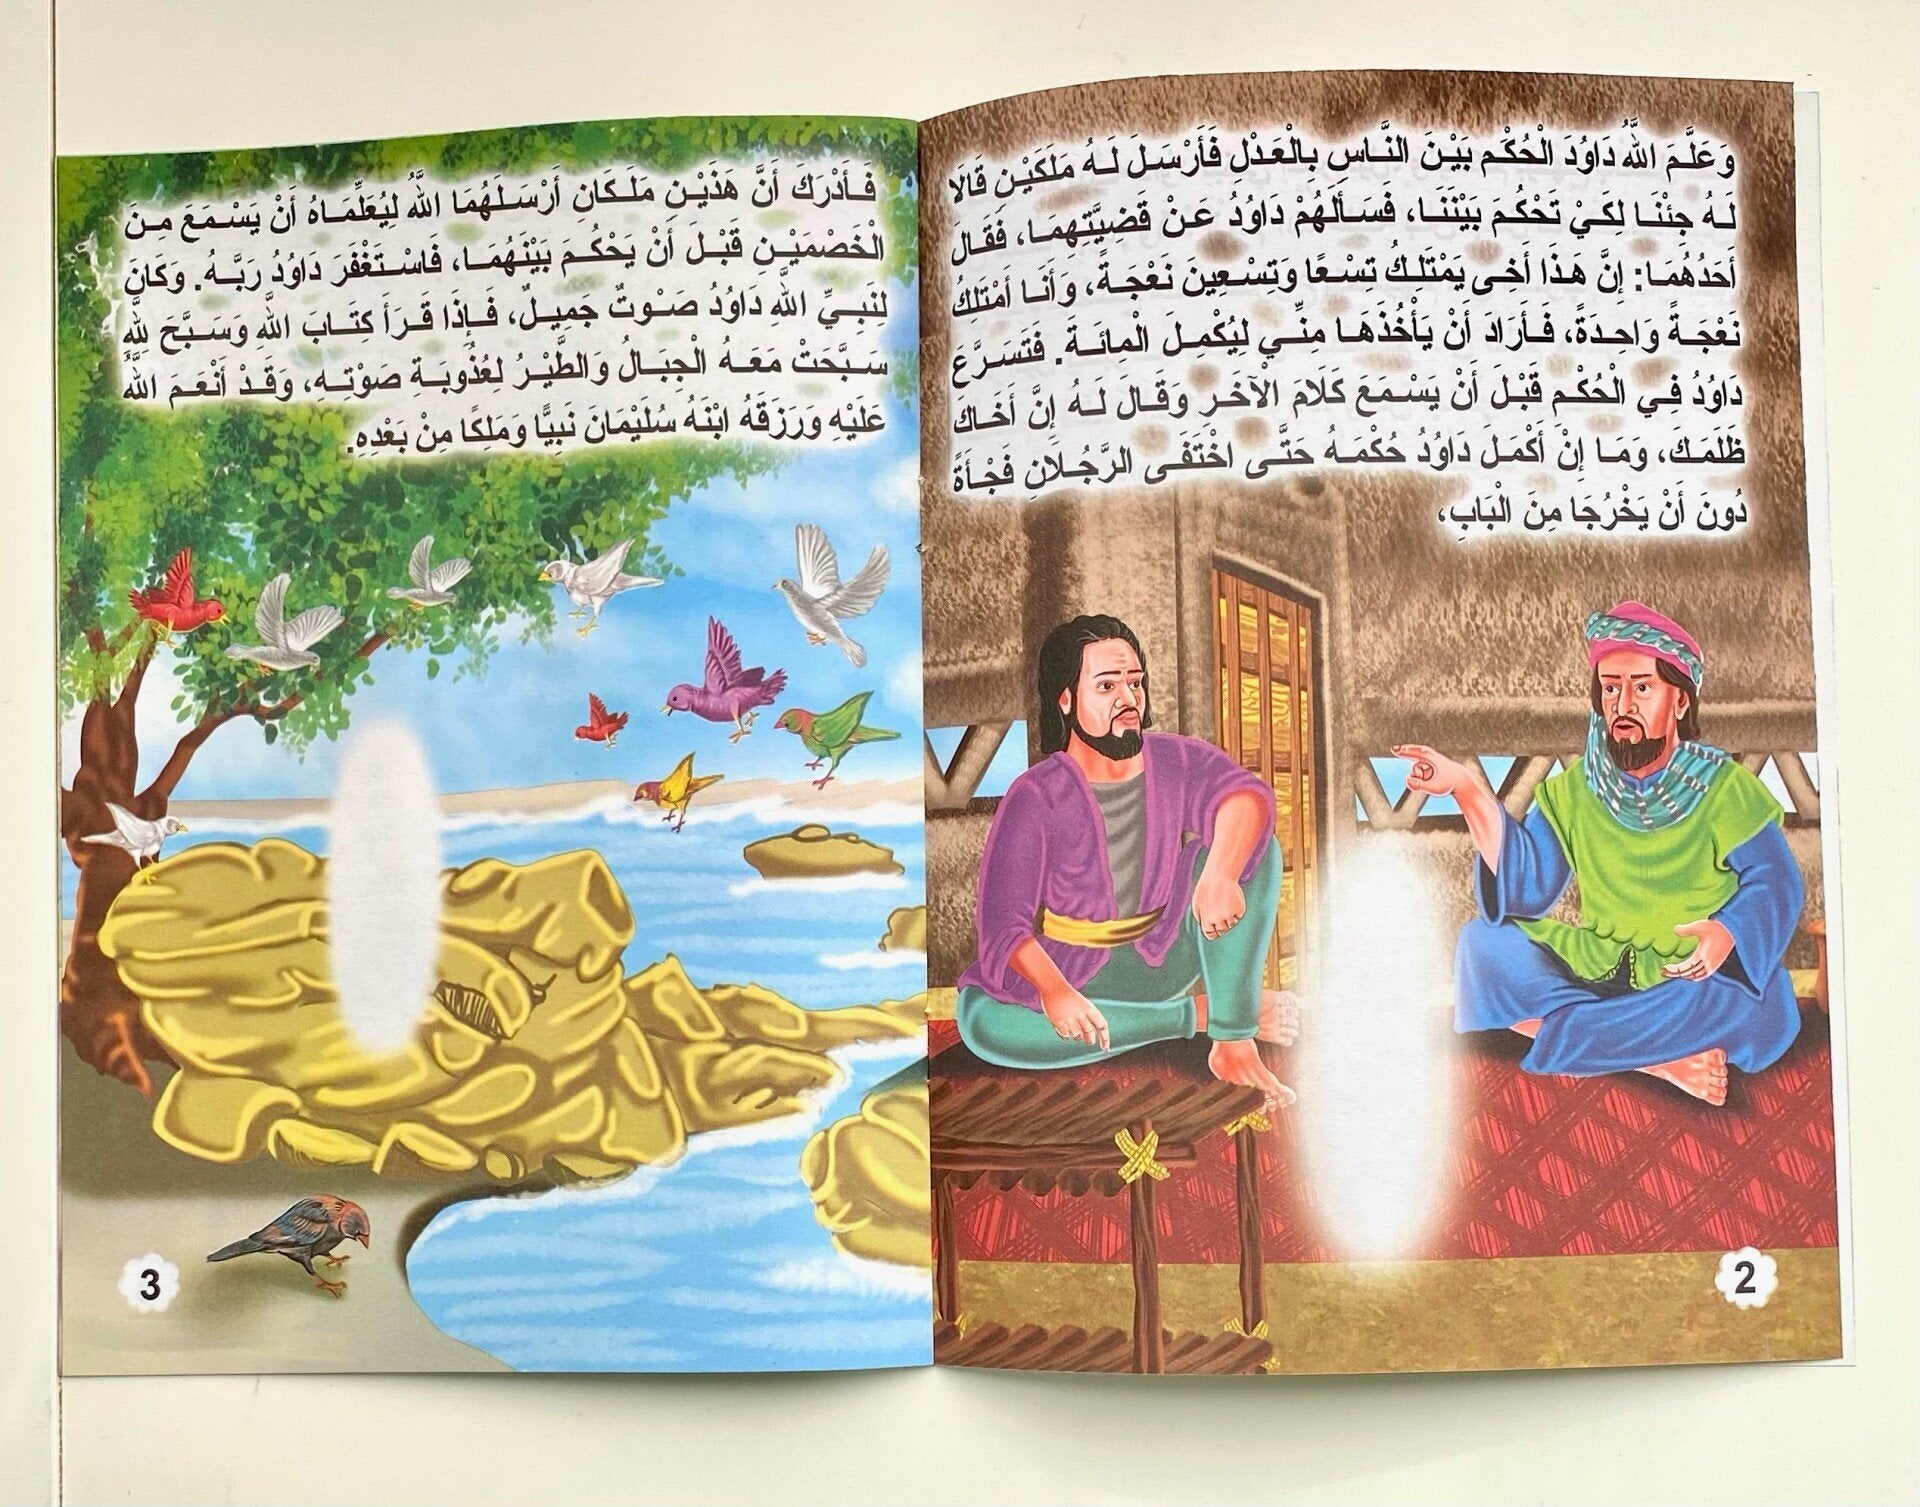 وَعَلَّمَ اللَّهُ دَاوُدَ الْحُكْمَ بَيْنَ النَّاسِ بِالْعَدْلِ فَأَرْسَلَ لَهُ مَلَكَيْنِ قَالَا
لَهُ جِئْنَا لِكَيْ تَحْكُمَ بَيْنَنَا، فَسَأَلَهُمْ دَاوُدُ عَنْ قَضِيَّتِهِمَا، فَقَالَ
أَحَدُهُمَا: إِنَّ هَذَا أَخِى يَمْتَلِكُ تِسْعًا وَتِسْعِينَ نَعْجَةً، وَأَنَا أَمْتَلِكُ
نَعْجَةً وَاحِدَةً، فَأَرَادَ أَنْ يَأْخُذَهَا مِنِّي لِيُكْمِلَ الْمِائَةَ. فَتَسَرَّعَ
دَاوُدُ فِي الْحُكْمِ قَبْلَ أَنْ يَسْمَعَ كَلَامَ الْآخَرِ وَقَالَ لَهُ إِنَّ أَخَاكَ
ظَلَمَكَ، وَمَا إِنْ أَكْمَلَ دَاوُدُ حُكْمَهُ حَتَّى اخْتَفَى الرَّجُلَانِ فَجْأَةً
دُونَ أَنْ يَخْرُجَا مِنَ الْبَابِ،
2
فَأَدْرَكَ أَنَّ هَذَيْنِ مَلَكَانِ أَرْسَلَهُمَا اللَّهُ لِيُعَلِّمَاهُ أَنْ يَسْمَعَ مِنَ
الْخَصْمَيْنِ قَبْلَ أَنْ يَحْكُمَ بَيْنَهُمَا، فَاسْتَغْفَرَ دَاوُدُ رَبَّهُ. وَكَانَ
لِنَبِيِّ اللَّهِ دَاوُدُ صَوْتٌ جَمِيلٌ، فَإِذَا قَرَأَ كِتَابَ اللَّهِ وَسَبَّحَ لِلَّهِ
سَبَّحَتْ مَعَهُ الْجِبَالُ وَالطَّيْرُ لِعُذُوبَةِ صَوْتِهِ، وَقَدْ أَنْعَمَ اللَّهُ
عَلَيْهِ وَرَزَقَهُ ابْنَهُ سُلَيْمَانَ نَبِيًّا وَمَلَكًا مِنْ بَعْدِهِ.
3